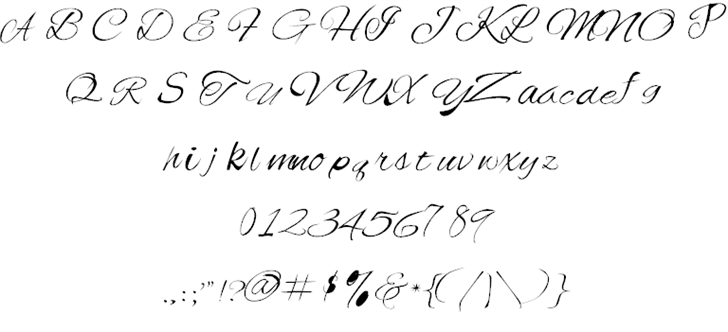 A B C D E F G H I J K L M N O P
Q R S T U V W X Y Z a a c d e f g
h i j k l m n o p q r s t u v w x y z
0 1 2 3 4 5 6 7 8 9
. , : ; ' " ! ? @ # $ % & * { ( / | \ ) }